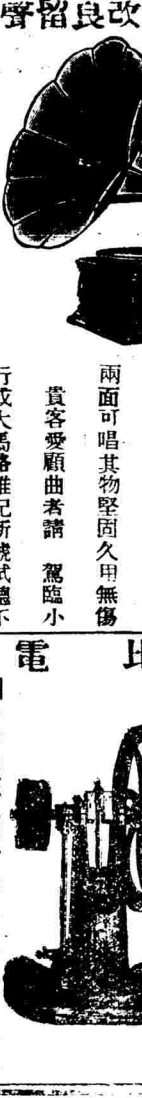 改良留聲
兩面可唱其物堅固久用無傷
貴客愛顧曲者請 駕臨小
行或大馬路 記新號試聽不
電